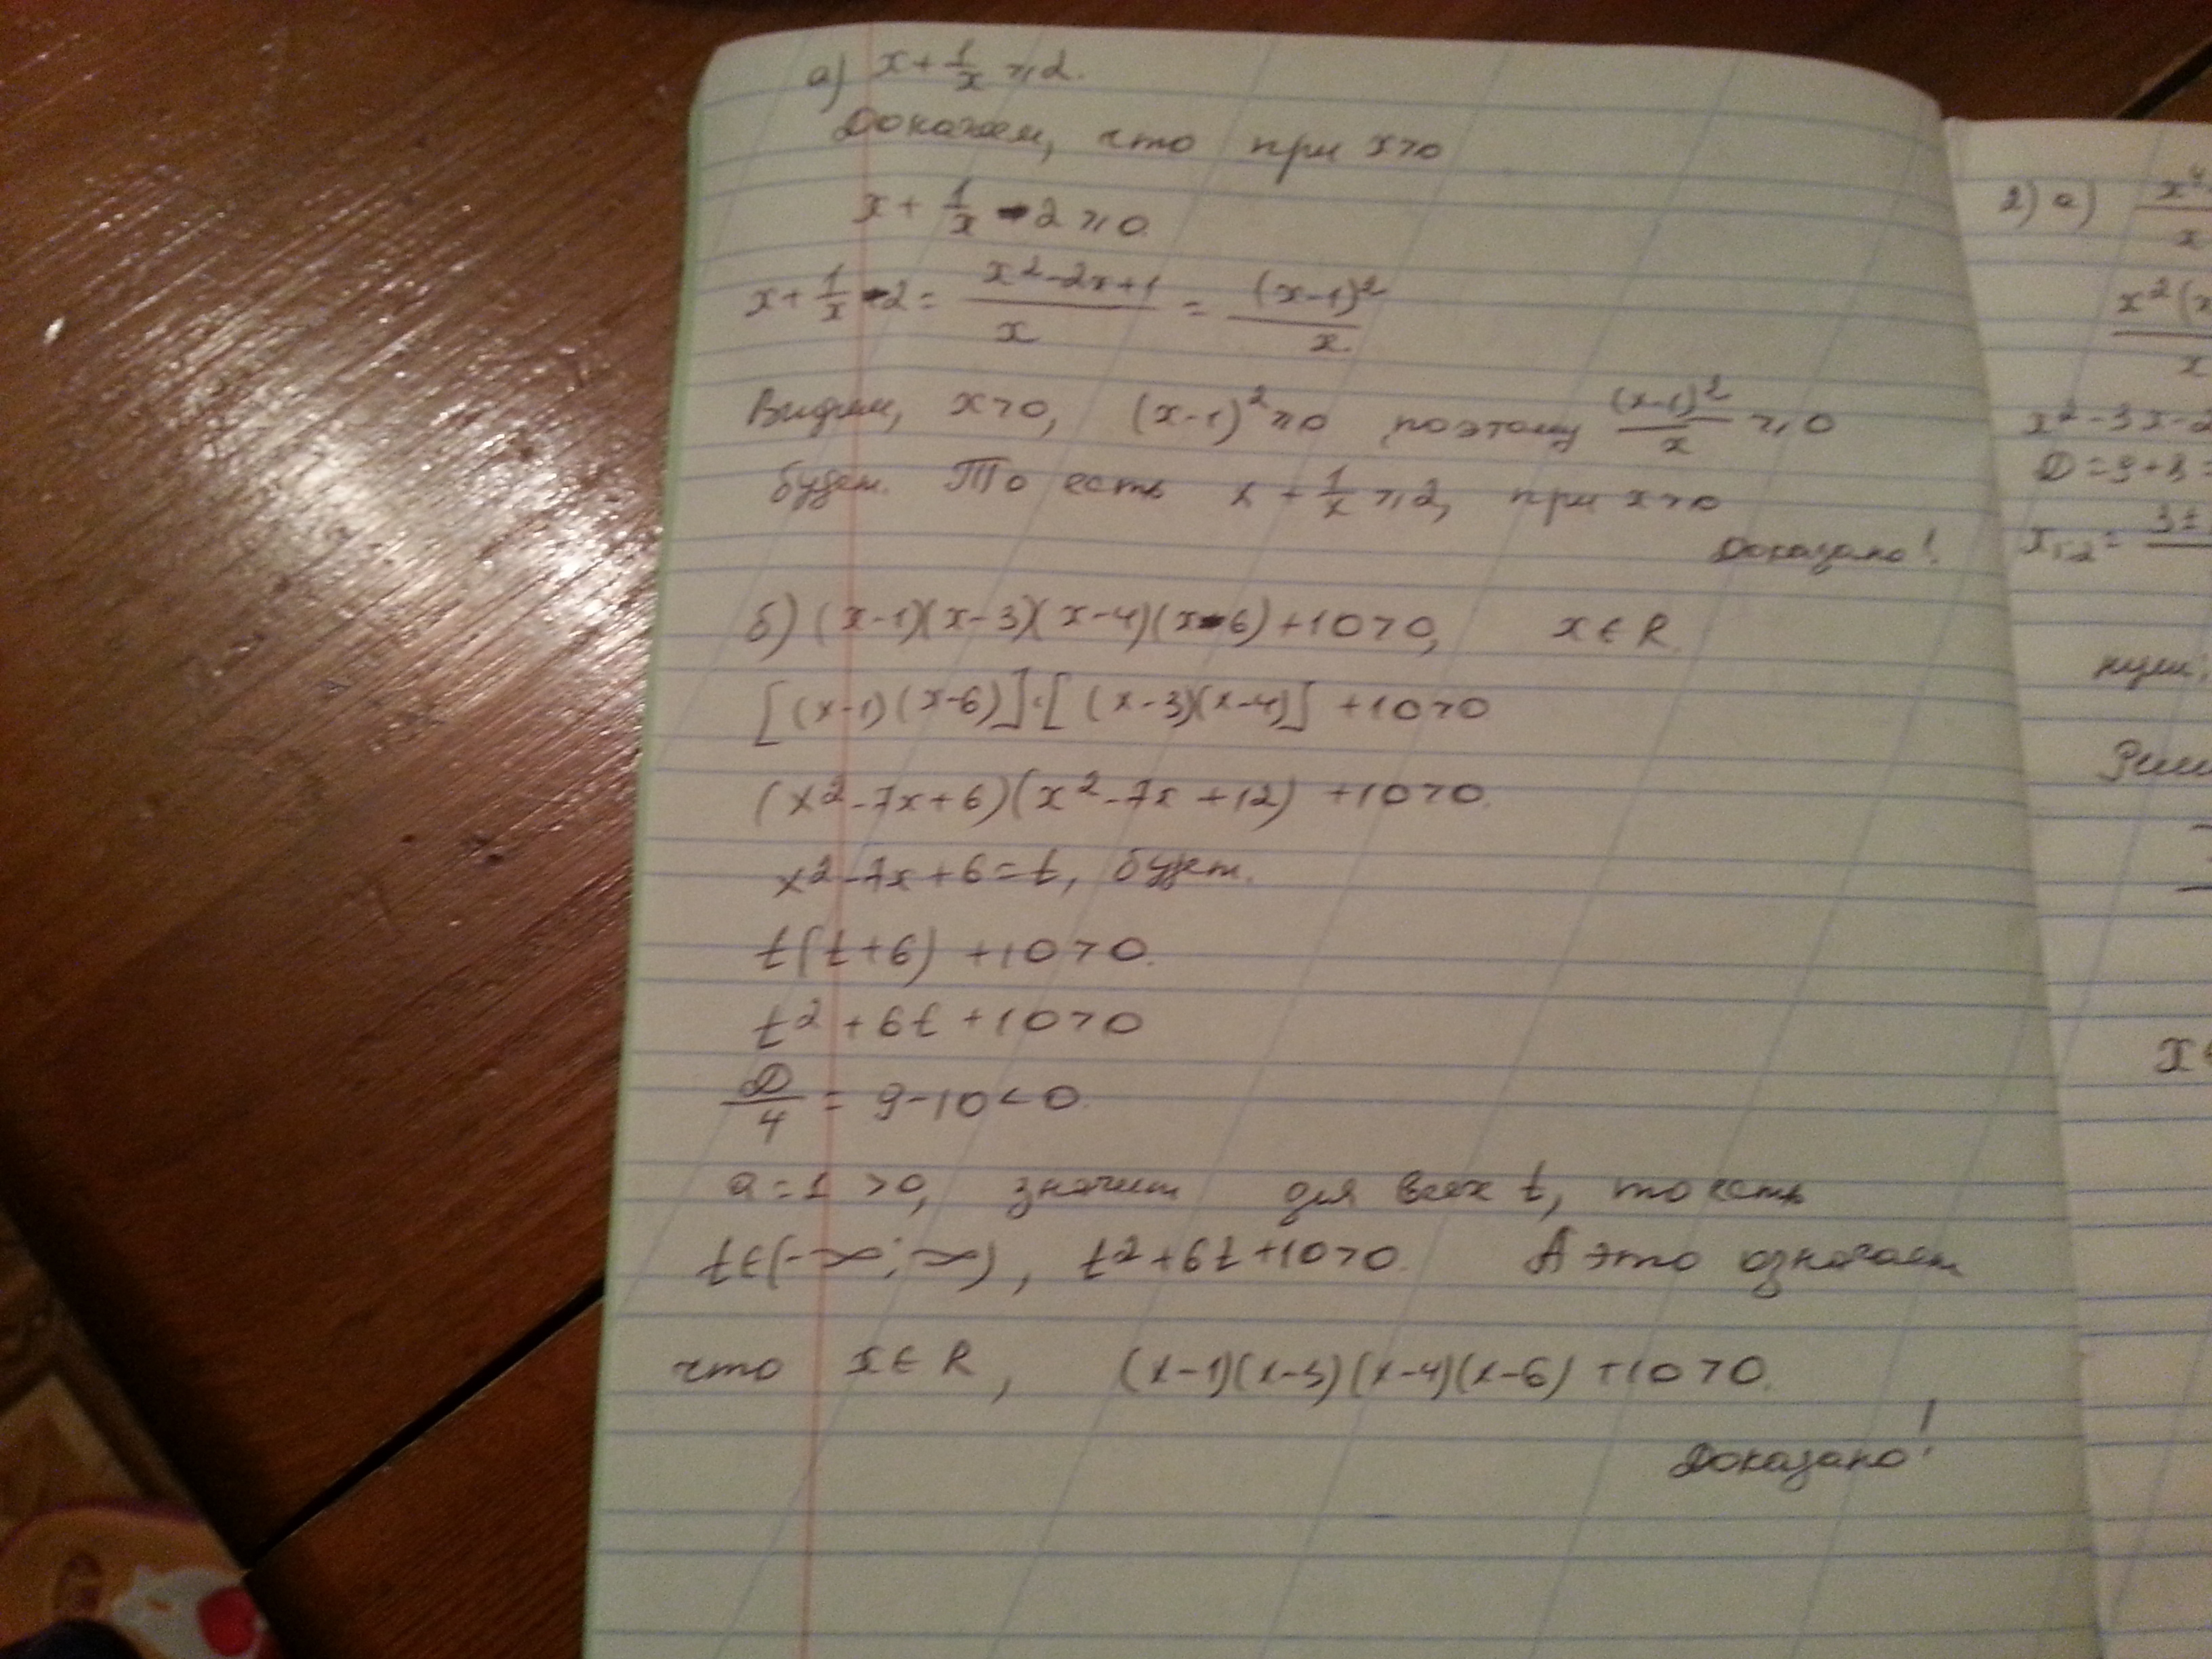 а) x + 1/x ⩾ 2.
Докажем, что при x>0
x + 1/x - 2 ⩾ 0
x + 1/x - 2 = (x²-2x+1)/x = (x-1)²/x
Видим, x>0, (x-1)²⩾0 поэтому (x-1)²/x ⩾ 0
будет. То есть x + 1/x ⩾ 2, при x>0
Доказано!
б) (x-1)(x-3)(x-4)(x-6)+10>0, x∈R
[(x-1)(x-6)]·[(x-3)(x-4)] +10>0
(x²-7x+6)(x²-7x+12) +10>0.
x²-7x+6=t, будет.
t(t+6) +10>0.
t²+6t+10>0
D/4 = 9-10<0.
a=1>0, значит для всех t, то есть
t∈(-∞;∞), t²+6t+10>0. А это означает
что x∈R, (x-1)(x-3)(x-4)(x-6)+10>0.
Доказано!
2) а) x⁴
x
x²(
x
x²-3x-2
D=9+8=
x₁,₂= 3±
нули: